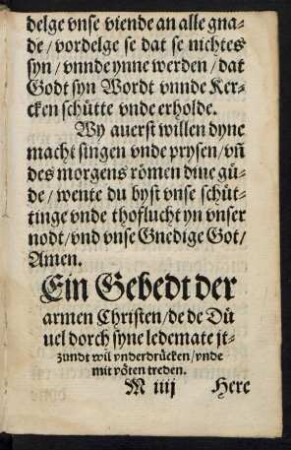 delge vnse viende an alle gna⸗
de / vordelge se dat se nichtes
syn / vnnde ynne werden / dat
Godt syn Wordt vnnde Ker⸗
cken schütte vnde erholde.
Wy auerst willen dyne
macht singen vnde prysen / vñ
des morgens römen dine gü⸗
de / wente du byst vnse schüt⸗
tinge vnde thoflucht yn vnser
nodt / vnd vnse Gnedige Got /
Amen.
Ein Gebedt der
armen Christen / de de Dü
uel dorch syne ledemate jt⸗
zundt wil vnderdrücken / vnde
mit vöten treden.
M iiij Here